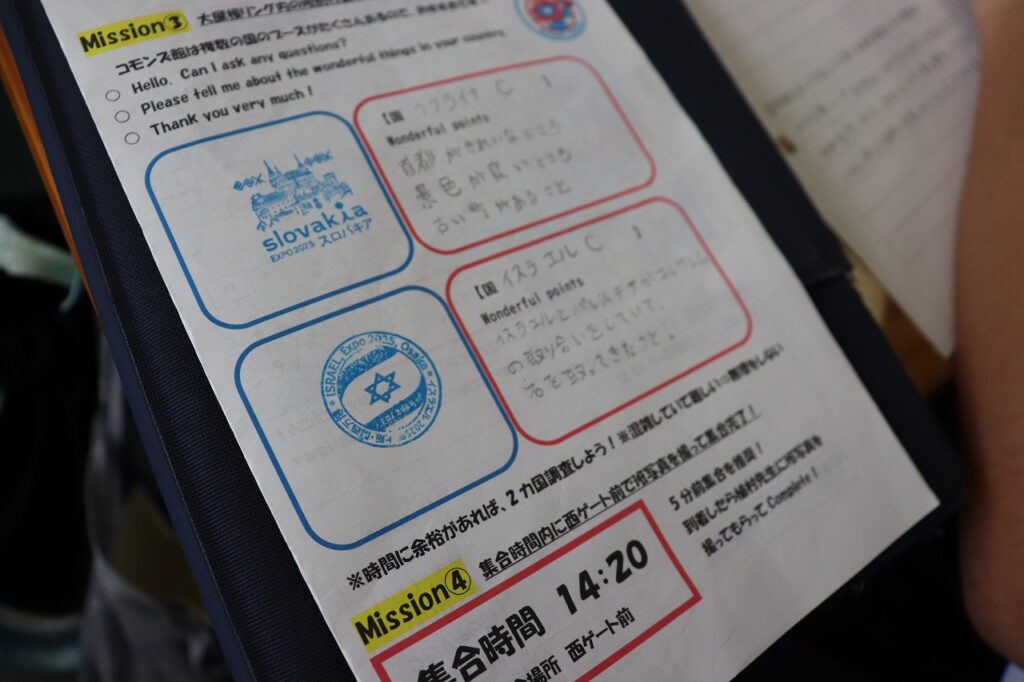 Mission③
コモンズ館は複数の国のブースがたくさんあるので、
○ Hello. Can I ask any questions?
○ Please tell me about the wonderful things in your country.
○ Thank you very much!
slovakia
EXPO2025 スロバキア
【国 ウクライナ C 1
Wonderful points
首都がきれいなところ
景色が良いところ
古い町があること
ISRAEL, Expo 2025, Osaka
イスラエル 2025年
【国 イスラエル C 1
Wonderful points
イスラエルとパレスチナがエルサレム
の取り合いをしていて、
石を取ってきたこと!
※時間に余裕があれば、2カ国調査しよう!※混雑していて厳しい⇒無理をしない
Mission④ 集合時間内に西ゲート前で班写真を撮って集合完了!
集合時間 14:20
合場所 西ゲート前
5分前集合を推奨!
到着したら植村先生に班写真を
撮ってもらって Complete!